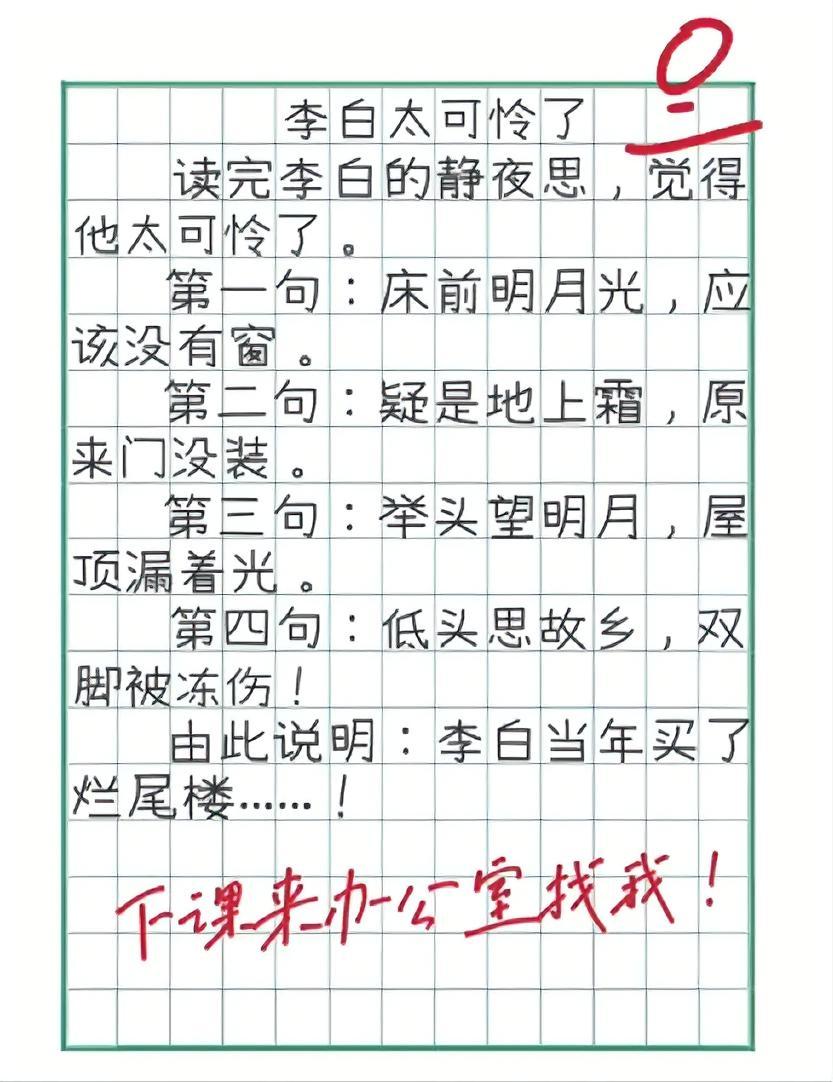 0
李白太可怜了
读完李白的静夜思，觉得
他太可怜了。
第一句：床前明月光，应
该没有窗。
第二句：疑是地上霜，原
来门没装。
第三句：举头望明月，屋
顶漏着光。
第四句：低头思故乡，双
脚被冻伤！
由此说明：李白当年买了
烂尾楼……！
下课来办公室找我！